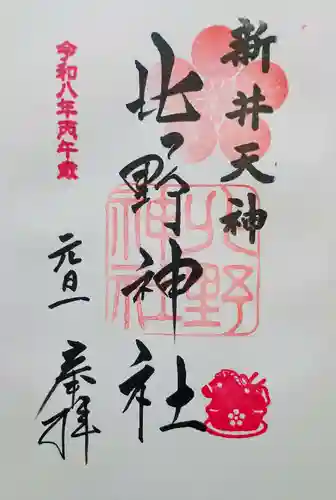 新井天神
北野神社
令和八年丙午歳
元旦
奉拝
北野
神社